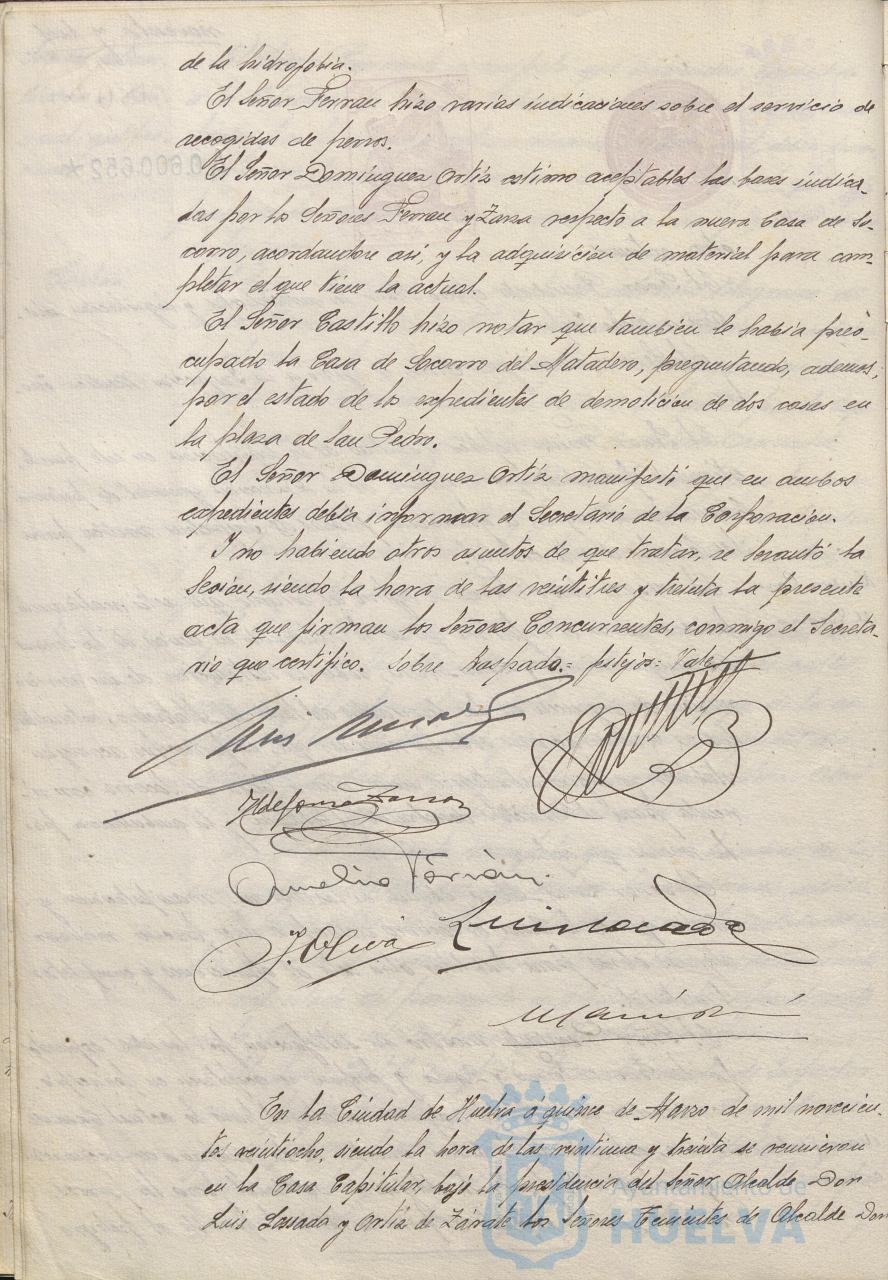 de la hidrofobia.
El Señor Terrau hizo varias indicaciones sobre el servicio de
recogidas de perros.
El Señor Domínguez Ortiz estimo aceptables las bases indica-
das por los Señores Terrau y Zarza respecto a la nueva Casa de So-
corro, acordandose asi, y la adquisición de material para com-
pletar el que tiene la actual.
El Señor Castillo hizo notar que tambien le habia preo-
cupado la Casa de Socorro del Matadero, preguntando, ademas,
por el estado de los expedientes de demolición de dos casas en
la plaza de San Pedro.
El Señor Domínguez Ortiz manifestó que en ambos
expedientes debia informar el Secretario de la Corporacion.
Y no habiendo otros asuntos de que tratar, se levantó la
Sesion, siendo la hora de las veintitres y treinta la presente
acta que firman los Señores Concurrentes, conmigo el Secreta-
rio que certifico. Sobre raspado = festejos = Vale
Ildefonso Zarza
Aurelio Terrán.
J. Oliva
En la Ciudad de Huelva á quince de Marzo de mil novecien-
tos veintiocho, siendo la hora de las veintiuna y treinta se reunieron
en la Casa Capitular, bajo la presidencia del Señor Alcalde Don
Luis Losada y Ortiz de Zárate los Señores Tenientes de Alcalde Don
Ayuntamiento de
HUELVA
0.600.652 *